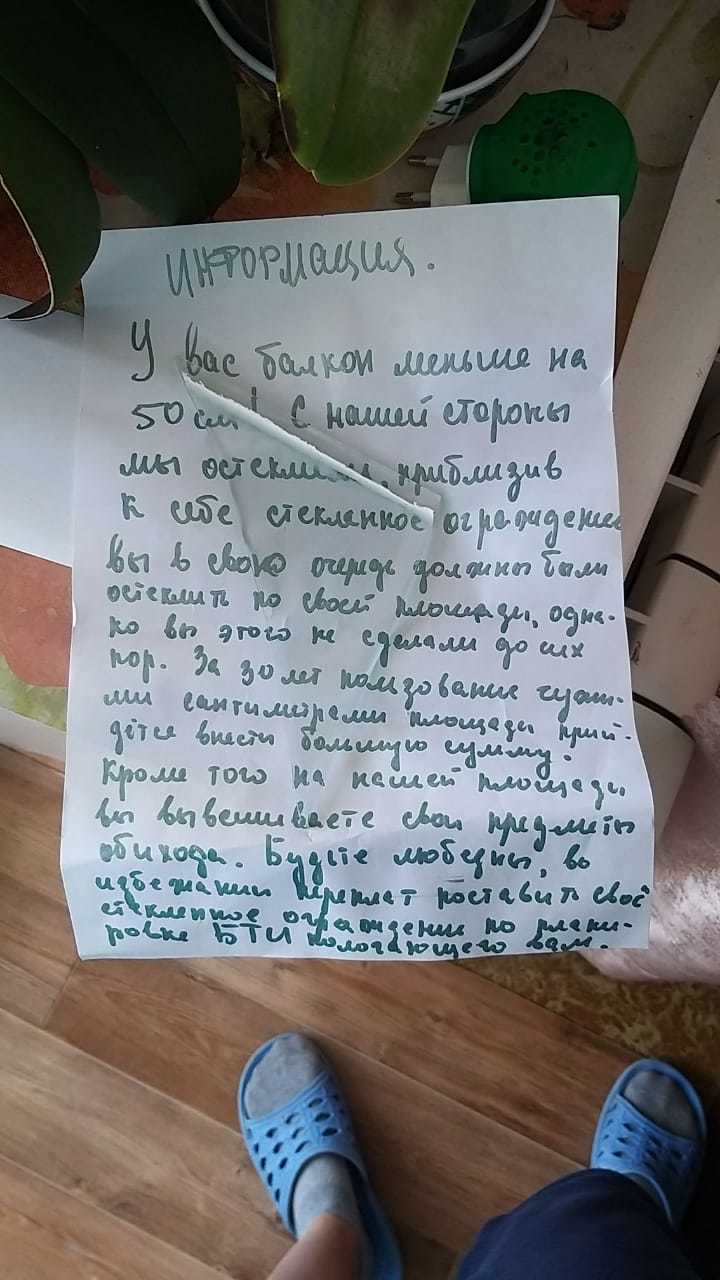 ИНФОРМАЦИЯ.
У вас балкон меньше на
50 см! С нашей стороны
мы остеклили, приблизив
к себе стеклянное ограждение
вы в свою очередь должны были
остеклить по своей площади, одна-
ко вы этого не сделали до сих
пор. За 30 лет пользование чужи-
ми сантиметрами площади прий-
дётся внести большую сумму.
Кроме того на нашей площади
вы вывешиваете свои предметы
обихода. Будьте любезны, во
избежании переплат поставить своё
стекленное ограждение по плани-
ровке БТИ полагающегося вам.